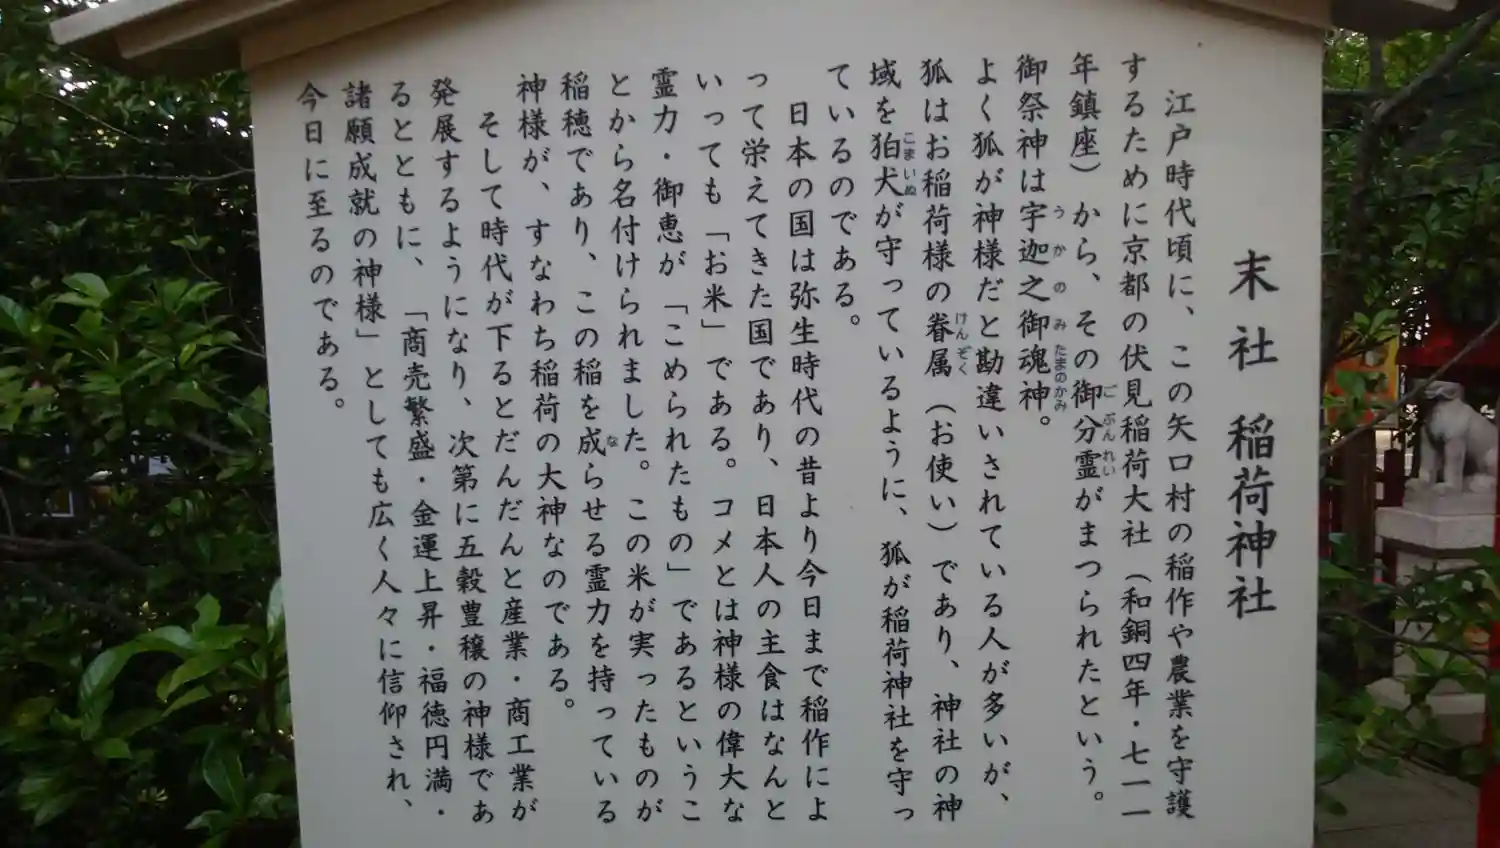 末社 稲荷神社
江戸時代頃に、この矢口村の稲作や農業を守護
するために京都の伏見稲荷大社（和銅四年・七一一
年鎮座）から、その御分霊がまつられたという。
ごぶんれい
御祭神は宇迦之御魂神。
うかのみたまのかみ
よく狐が神様だと勘違いされている人が多いが、
狐はお稲荷様の眷属（お使い）であり、神社の神
けんぞく
域を狛犬が守っているように、狐が稲荷神社を守っ
こまいぬ
ているのである。
日本の国は弥生時代の昔より今日まで稲作によ
って栄えてきた国であり、日本人の主食はなんと
いっても「お米」である。コメとは神様の偉大な
霊力・御恵が「こめられたもの」であるというこ
とから名付けられました。この米が実ったものが
稲穂であり、この稲を成らせる霊力を持っている
な
神様が、すなわち稲荷の大神なのである。
そして時代が下るとだんだんと産業・商工業が
発展するようになり、次第に五穀豊穣の神様であ
るとともに、「商売繁盛・金運上昇・福徳円満・
諸願成就の神様」としても広く人々に信仰され、
今日に至るのである。